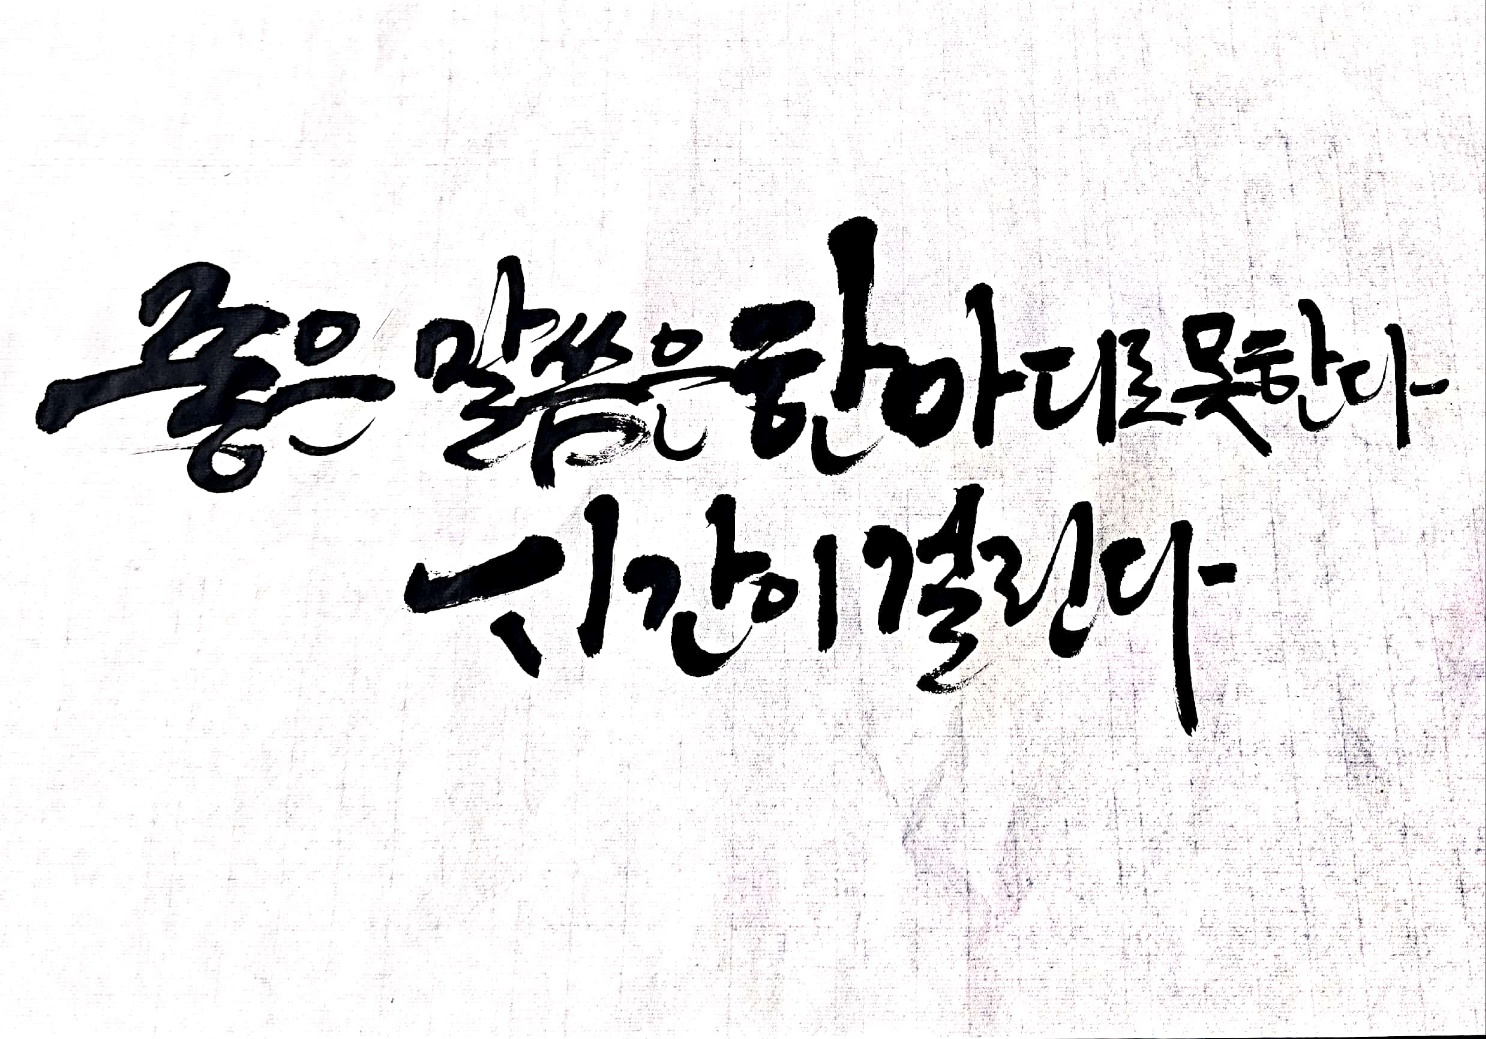 좋은 말씀은 한마디로 못한다
시간이 걸린다